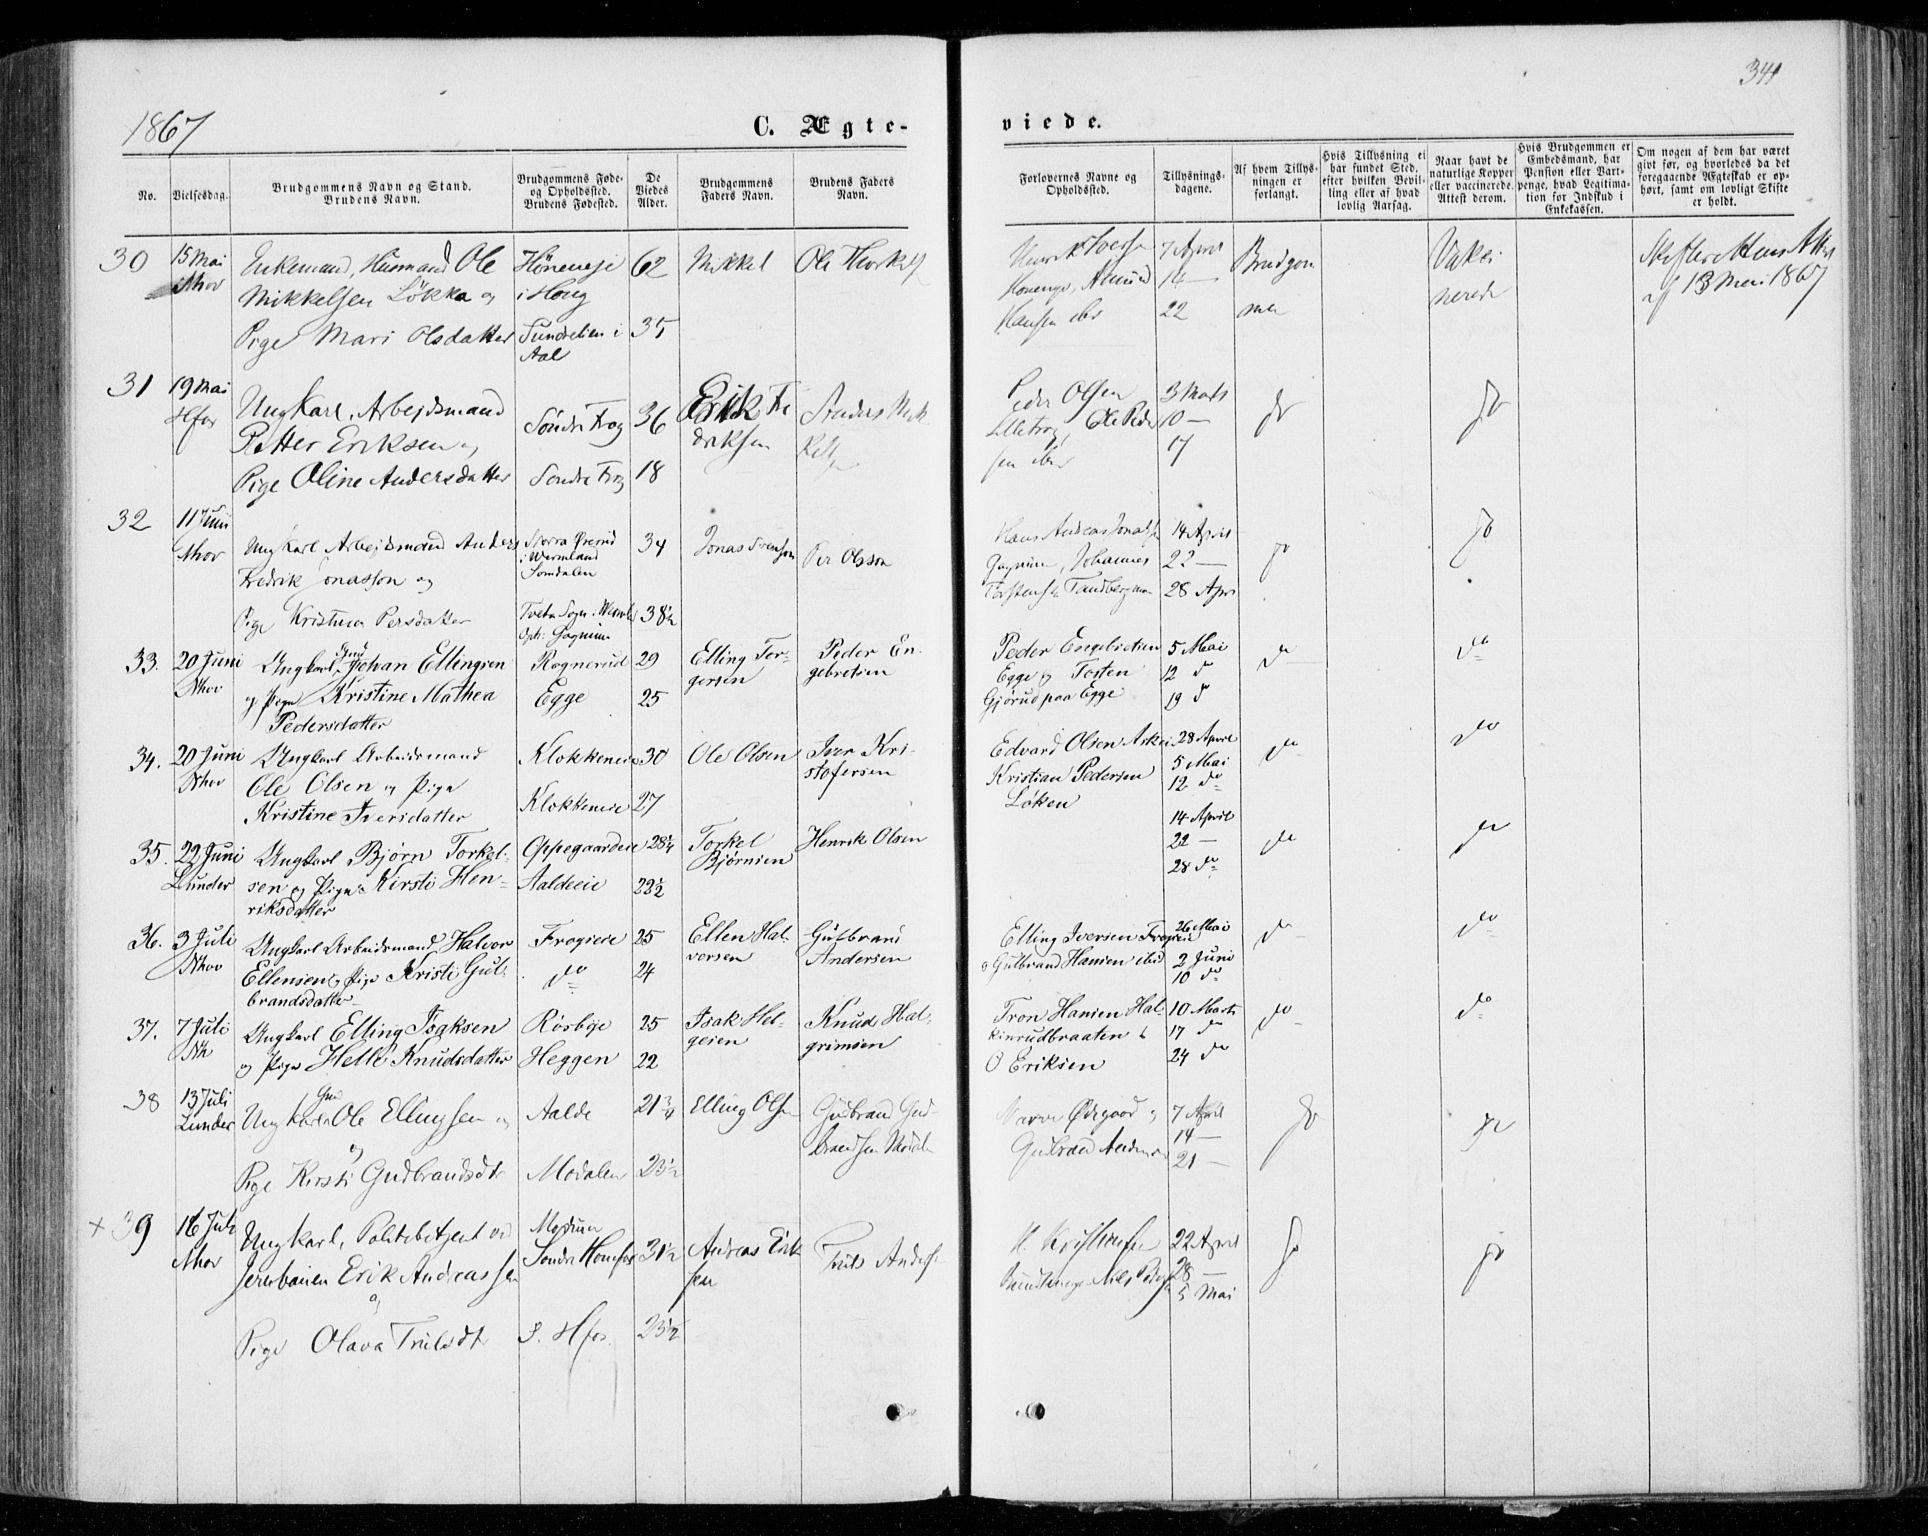 341
1867
C. Ægte-
viede.
No.
Vielsesdag.
Brudgommens Navn og Stand.
Brudens Navn.
Brudgommens Føde-
og Opholdssted.
Brudens Fødested.
De
Viedes
Alder.
Brudgommens
Faders Navn.
Brudens Faders
Navn.
Forlovernes Navne og
Opholdssted.
Tillysnings-
dagene.
Af hvem Tillys-
ningen er
forlangt.
Hvis Tillysning ei
har fundet Sted,
efter hvilken Bevil-
ling eller af hvad
lovlig Aarsag.
Naar havt de
naturlige Kopper
eller vaccinerede.
Attest derom.
Hvis Brudgommen er
Embedsmand, har
Pension eller Vart-
penge, hvad Legitima-
tion for Indskud i
Enkekassen.
Om nogen af dem har været
gift før, og hvorledes da det
foregaaende Ægteskab er op-
hørt, samt om lovligt Skifte
er holdt.
30
15 Mai
Nhov
Enkemand, Husmand Ole
Mikkelsen Løkka og
Pige Mari Olsdatter
i Houg
i
Aal
62
35
Mikkel
7 April
14 —
22
Hansen ibr
Brudgom
men
Vakci
nerede
af 13 Mai 1867
31
19 Mai
Hfos
Ungkarl, Arbejdsmand
Petter Eriksen og
Pige Oline Andersdatter
Søndre Frog
Søndre Frog
36
18
Erik Fre
driksen
Anders
Peder Olsen
Ole Peder
sen ibr
3 Mats
10 —
17
do
do
32
11 Juni
Nhov
Ungkarl Arbejdsmand Anders
Fredrik Jonasson og
Pige Kristina Persdatter
i Wermland
Somdalen
Tveta Sogn i Wermld
Oph: Gagnum
34
38½
Jonas Svenson
Per Olsson
Hans Andreas Jonads
Gagnum, Johannes
14 April
22 —
28 Apri
do
do
33.
20 Juni
Nhov
Ungkarl Gmd Johan Ellingsen
og Pige Kristine Mathea
Pedersdatter
Rognerud
Egge
29
25
Elling Tor-
gersen
Peder En-
gebretsen
Peder Engebretsen
Egge og Tosten
Gjørud paa Egge
5 Mai
12 do
19 do
do
do
34.
20 Juni
Nhov
Ungkarl Arbeidsmand
Ole Olsen og Pige
Kristine Iversdatter
Klokkereie
Klokkereie
30
27
Ole Olsen
Iver Kri-
stofersen
Edvard Olsen Asker
Kristian Pedersen
Løken
28 April
5 Mai
12 do
do
do
35.
22 Juni
Lunder
Ungkarl Bjørn Torkel-
sen og Pige Kirsti Hen-
riksdatter
Oppegaardeie
Aaldeeie
28¼
22½
Torkel
Bjørnsen
Henrik Olsen
14 April
22 —
28 do
do
do
36.
3 Juli
Nhov
Ungkarl Arbeidsmand Halvor
Ellensen og Pige Kristi Gul-
brandsdatter
Frogseie
do
25
24
Ellen Hal-
vorsen
Gulbrand
Andersen
Elling Iversen Frogseie
o Gulbrand Hansen ibid
26 Mai
2 Juni
10 do
do
do
37.
7 Juli
Nh
Ungkarl Elling Isaksen
og Pige Helle Knudsdatter
Rørbøje
Heggen
25
22
Isak Hel-
gesen
Knud Hal-
grimsen
Tron Hansen Hal-
kinrudbraaten &
O Eriksen
10 Marts
17 do
24 do
do
do
38
13 Juli
Lunder
Ungkarl Gmd Ole Ellingsen og
Pige Kirsti Gudbrandsdt
Aalde
Modalen
21¾
23½
Elling Olsen
Gudbrand Gud
brandsen Modalen
Ødegaard og
Gudbrand
7 April
14 —
21 —
do
do
x 39
16 Juli
Nhov
Ungkarl, Politibetjent ved
Jernbanen Erik Andreassen
og
Pige Olava Trulsdt
Modum
Søndre Hønefos
S. Hfos
31½
23½
Andreas Erik
sen
Truls Anders
22 April
28 —
5 Mai
do
do